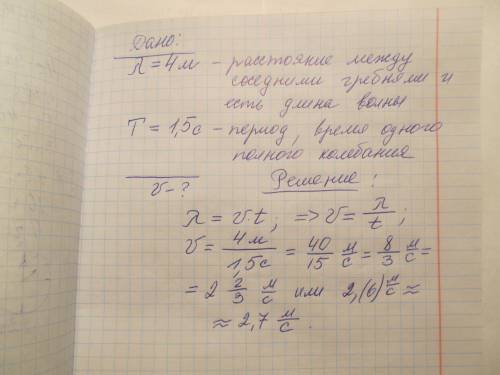 Дано:
λ = 4м – расстояние между
соседними гребнями и
есть длина волны
T = 1,5с – период, время одного
полного колебания
v – ?
Решение:
λ = v·t; => v = λ/t;
v = 4м/1,5с = 40/15 м/с = 8/3 м/с =
= 2 2/3 м/с или 2,(6) м/с ≈
≈ 2,7 м/с.